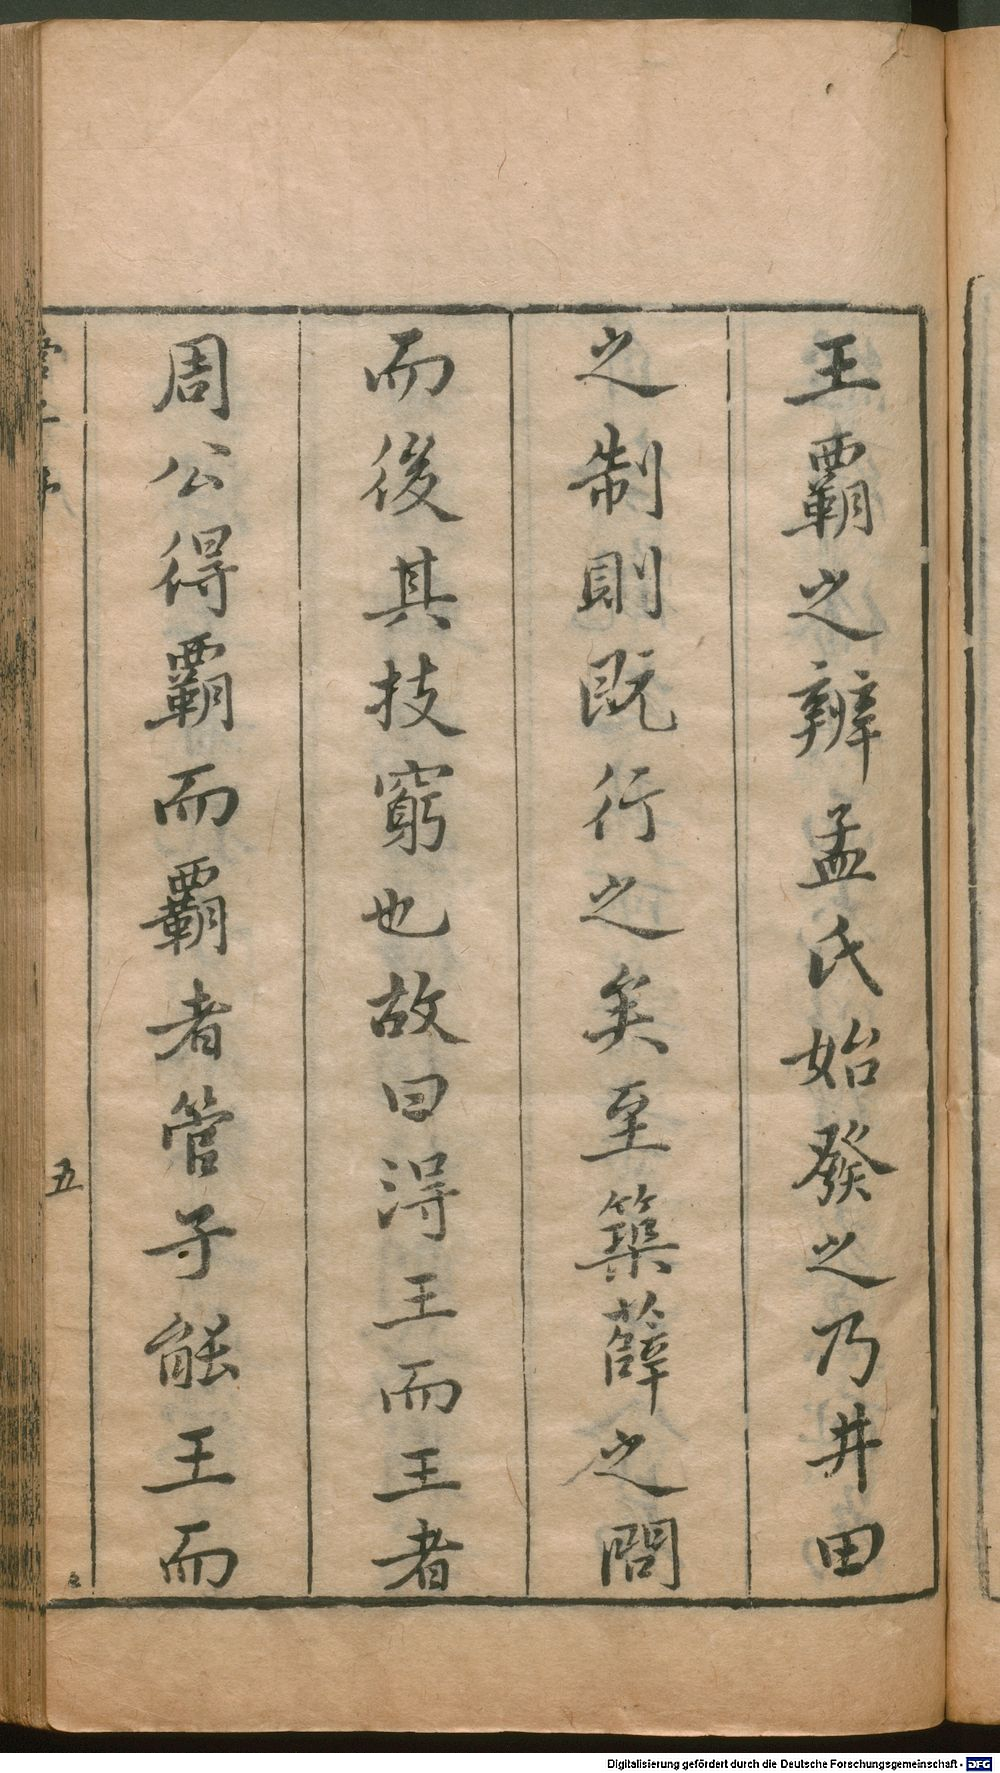 王覇之辨孟氏始發之乃井田
之制則既行之矣至築薛之問
而後其技窮也故曰得王而王者
周公得覇而覇者管子能王而
管子序
五
Digitalisierung gefördert durch die Deutsche Forschungsgemeinschaft - DFG